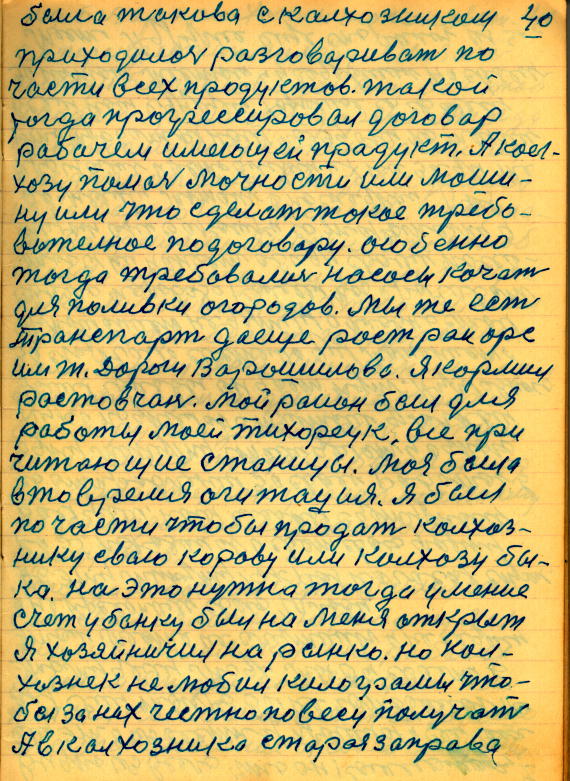 была такова с колхозником 40
приходилоя разговариват по
части всех продуктов. такой
тогда прогрессировал договар
рабачем имеющей прадукт. А кол-
хозу помоч мочности или маши-
ну или что сделат такое требо-
вателное подоговару. особенно
тогда требовалия насосы качат
для паливки огородов. мы же ест
транспарт даеще рост ран орс
им т. Дороги Варошилова. я кормил
растовчан. мой раион был для
работы моей тихорецк, все при
читающие станицы. моя была
вто время агитация. я был
почасти чтобы продат колхоз-
нику сваю корову или колхозу бы-
ка. на это нужна тогда умение
счет убанку был на меня аткрыт
я хозяйничил на рынко. но кол-
хозник не любил килограмы что-
бы за них честно повесу получат
А в колхозника старая заправа